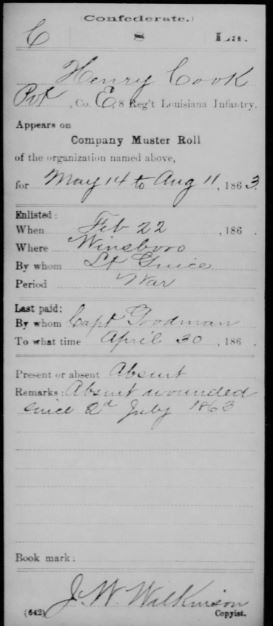 (Confederate.)
C 8 La.
Henry Cook
Pvt, Co. E, 8 Reg't Louisiana Infantry.
Appears on
Company Muster Roll
of the organization named above,
for May 14 to Aug 11, 1863.
Enlisted:
When Feb 22, 186 .
Where Winsboro
By whom Lt Guice
Period War
Last paid:
By whom Capt Goodman
To what time April 30, 186 .
Present or absent Absent
Remarks: Absent wounded
since 2d July 1863
Book mark:
J. W. Wilkinson
(642) Copyist.